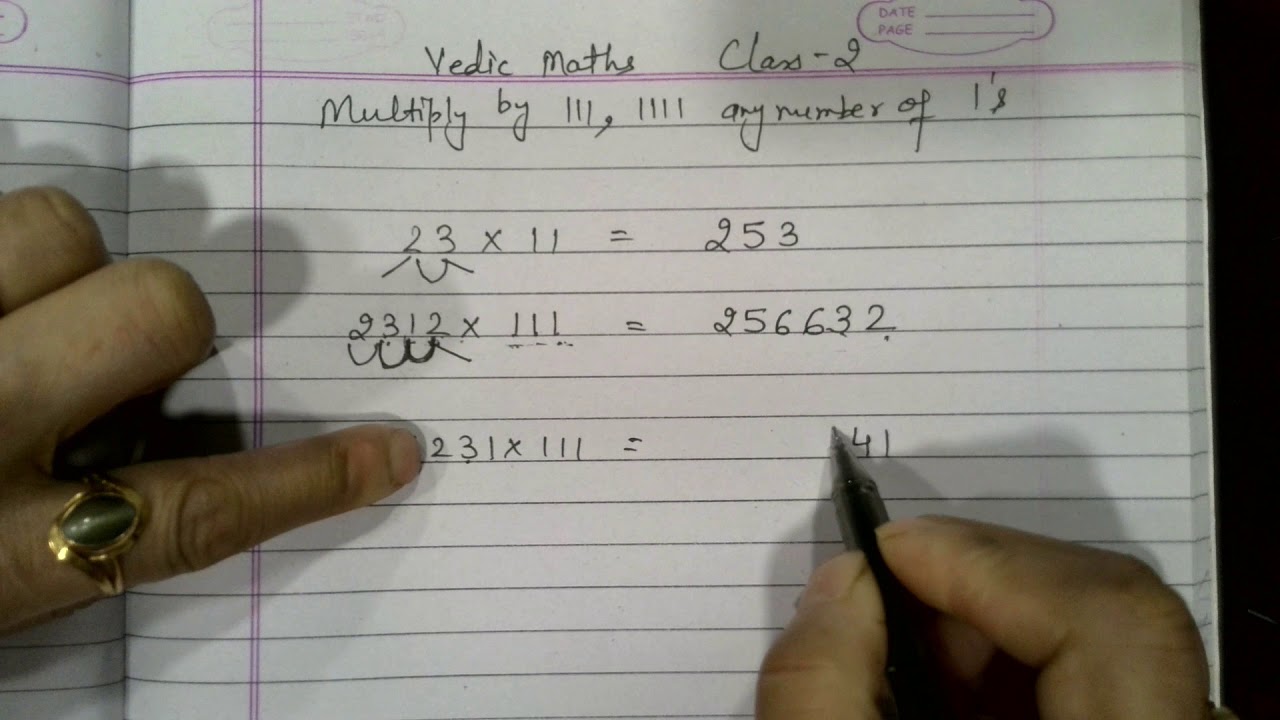 DATE
PAGE
Vedic Maths Class-2
Multiply by 111, 1111 any number of 1's
23 x 11 = 253
2312 x 111 = 256632
231 x 111 = 41